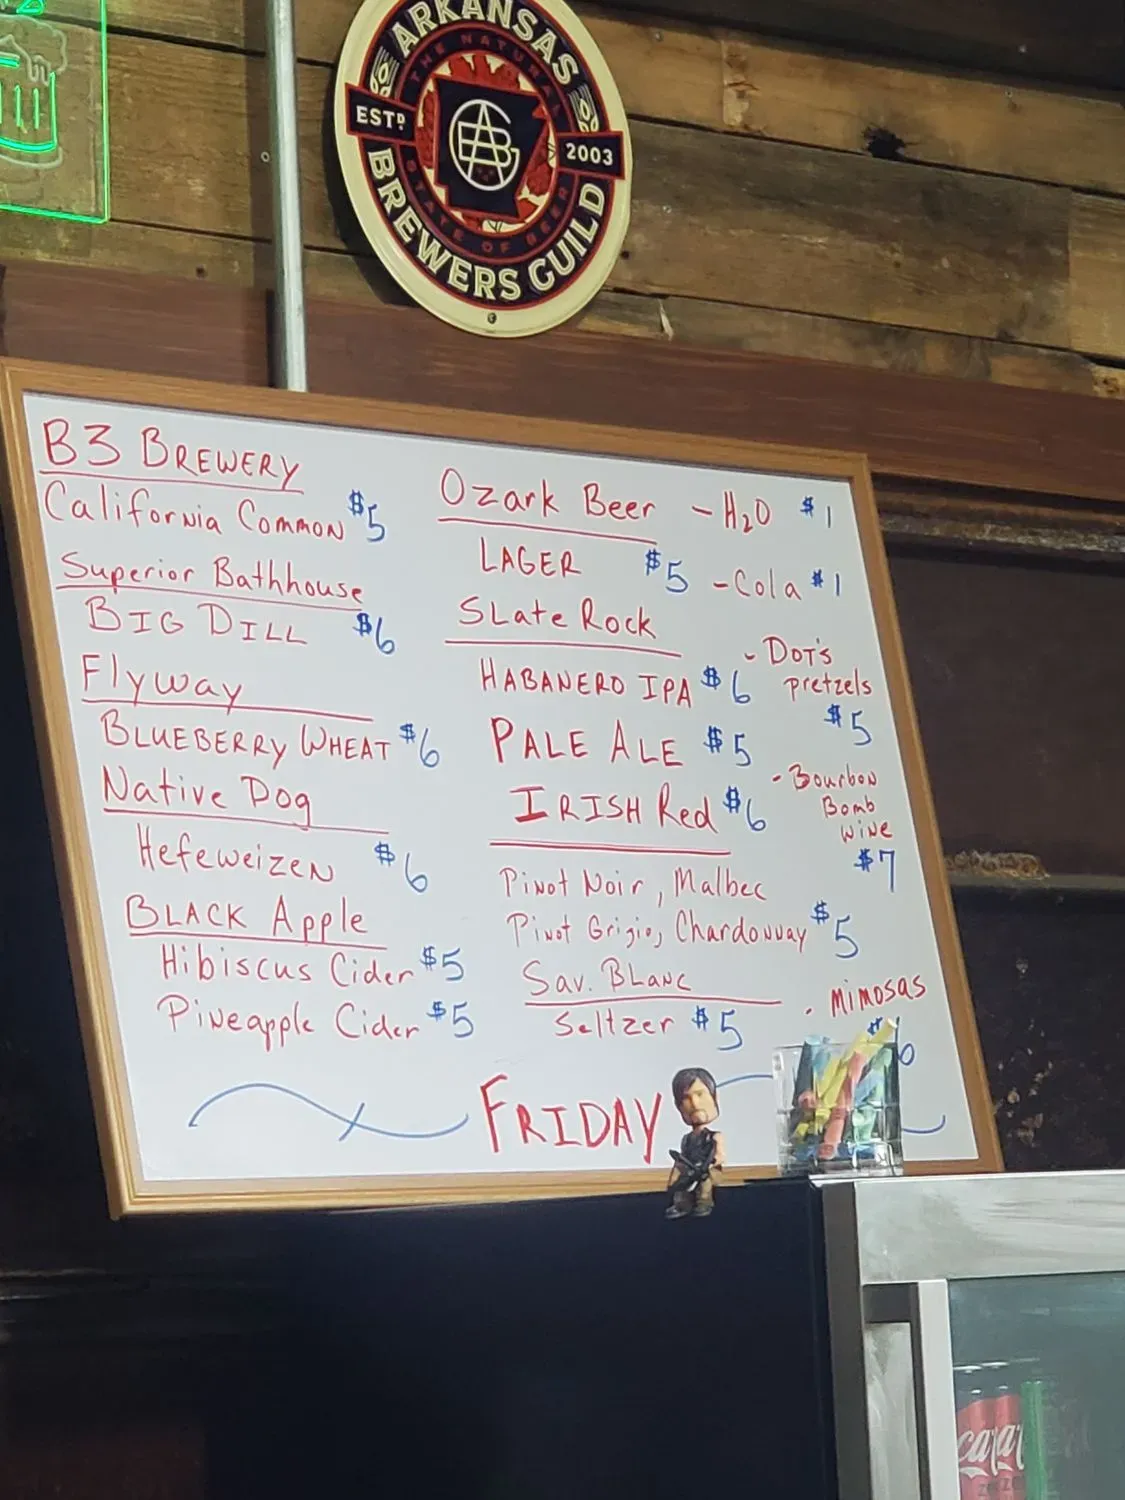 ARKANSAS
THE NATURAL
ESTD
2003
STATE OF BEER
BREWERS GUILD
B3 BREWERY
California Common $5
Superior Bathhouse
BIG DILL $6
Flyway
BLUEBERRY WHEAT $6
Native Dog
Hefeweizen $6
BLACK Apple
Hibiscus Cider $5
Pineapple Cider $5
Ozark Beer
LAGER $5
Slate Rock
HABANERO IPA $6
PALE ALE $5
IRISH Red $6
Pinot Noir, Malbec
Pinot Grigio, Chardonnay $5
Sav. Blanc
Seltzer $5
- H2O $1
- Cola $1
- DOT'S
pretzels
$5
- Bourbon
Bomb
wine
$7
. mimosas
$6
FRIDAY